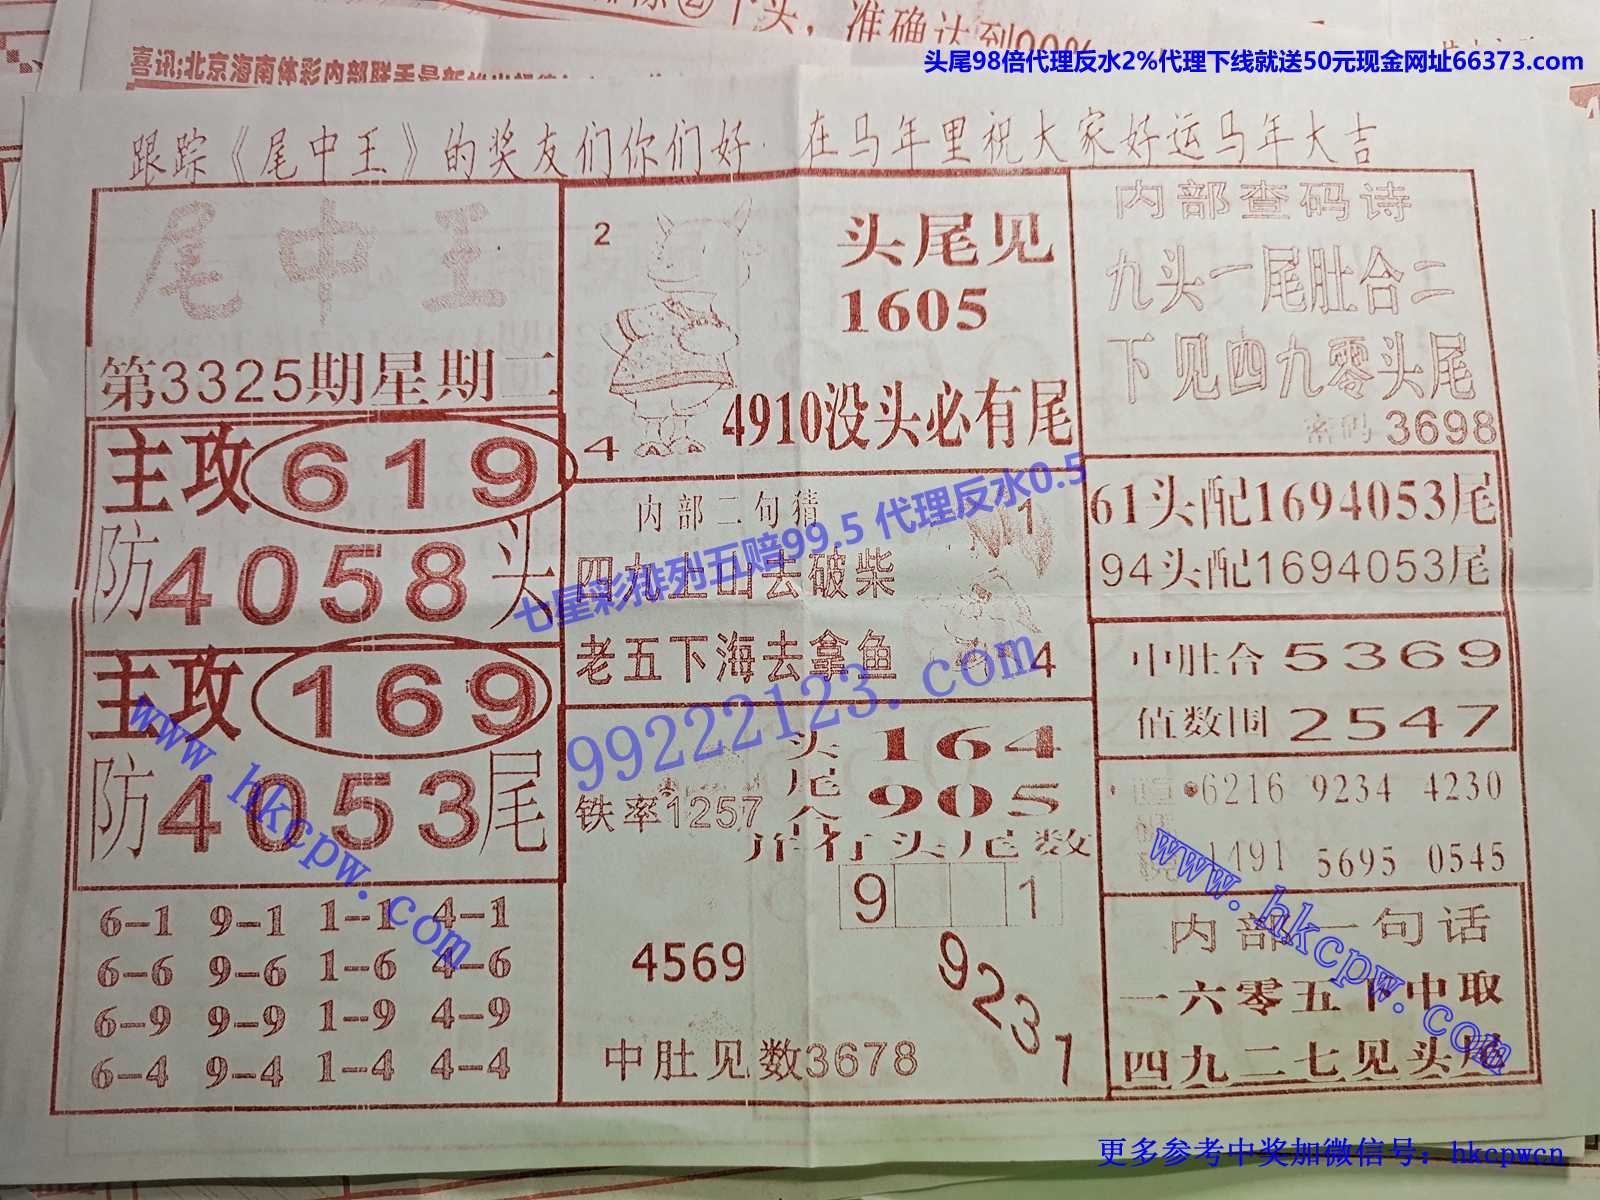 头尾98倍代理反水2%代理下线就送50元现金网址66373.com
跟踪《尾中王》的奖友们你们好 在马年里祝大家好运马年大吉
尾中王
第3325期星期二
主攻619
防4058头
主攻169
防4053尾
6-1 9-1 1-1 4-1
6-6 9-6 1-6 4-6
6-9 9-9 1-9 4-9
6-4 9-4 1-4 4-4
2
4
头尾见
1605
4910没头必有尾
内部二句猜
四九上山去破柴
老五下海去拿鱼
1
4
铁率1257
头164
尾905
头尾数
9 1
4569
9231
中肚见数3678
内部查码诗
九头一尾肚合二
下见四九零头尾
密码3698
61头配1694053尾
94头配1694053尾
中肚合5369
值数围2547
6216 9234 4230
1491 5695 0545
内部一句话
一六零五下中取
四九二七见头尾
七星彩排列五赔99.5 代理反水0.5
99222123.com
www.hkcpw.com
www.hkcpw.com
更多参考中奖加微信号：hkcpwcn